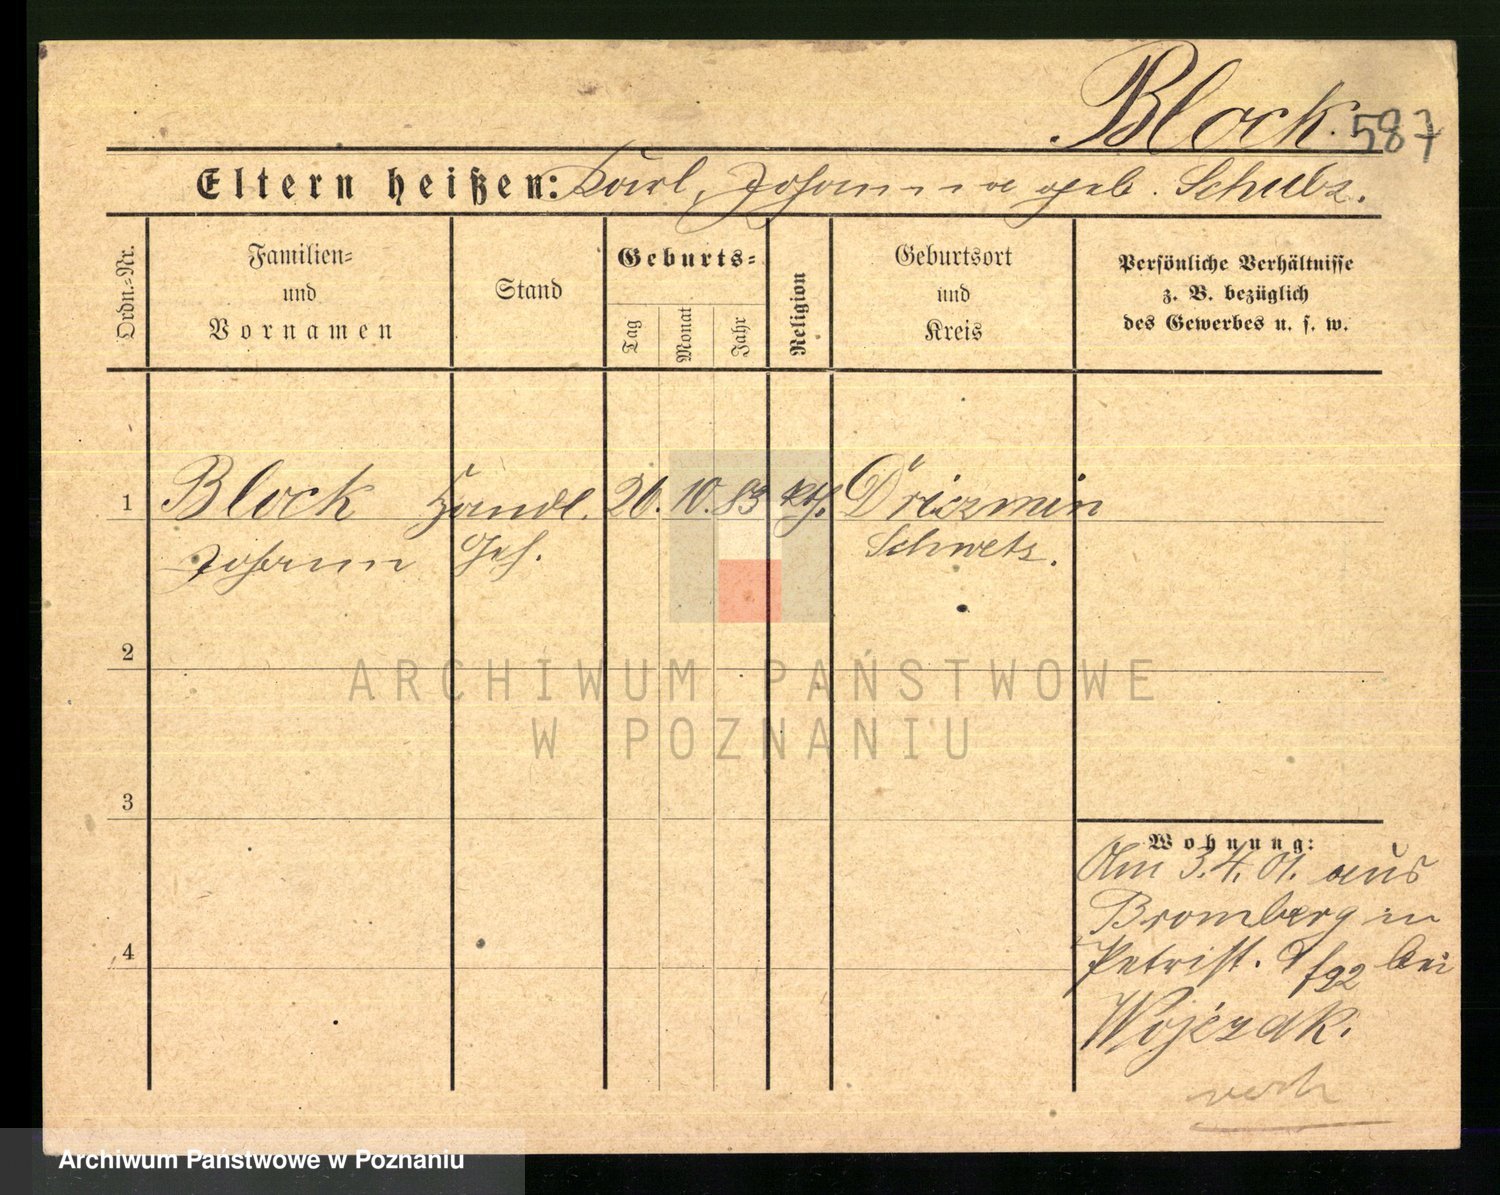 Block. 587
Eltern heißen: Karl, Johanna geb. Schulz.
Ordn.-Nr.
Familien-
und
Vornamen
Stand
Geburts-
Tag
Monat
Jahr
Religion
Geburtsort
und
Kreis
Persönliche Verhältnisse
z. B. bezüglich
des Gewerbes u. s. w.
1 Block Handl. 26. 10. 83 kth. Driczmin
Johann Geh. Schwetz.
2
ARCHIWUM PAŃSTWOWE
W POZNANIU
3
Wohnung:
Am 3.4.01. aus
Bromberg in
4 Petrist. bei
Wojczak.
Archiwum Państwowe w Poznaniu